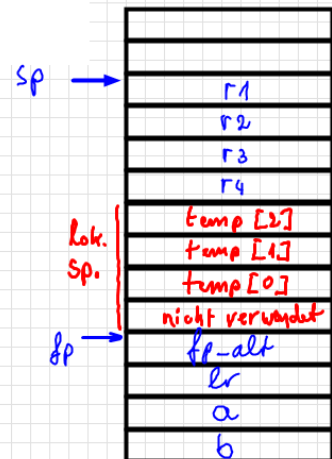 sp
r1
r2
r3
r4
temp [2]
Lok. Sp.
temp [1]
temp [0]
nicht verwendet
fp
fp-alt
lr
a
b